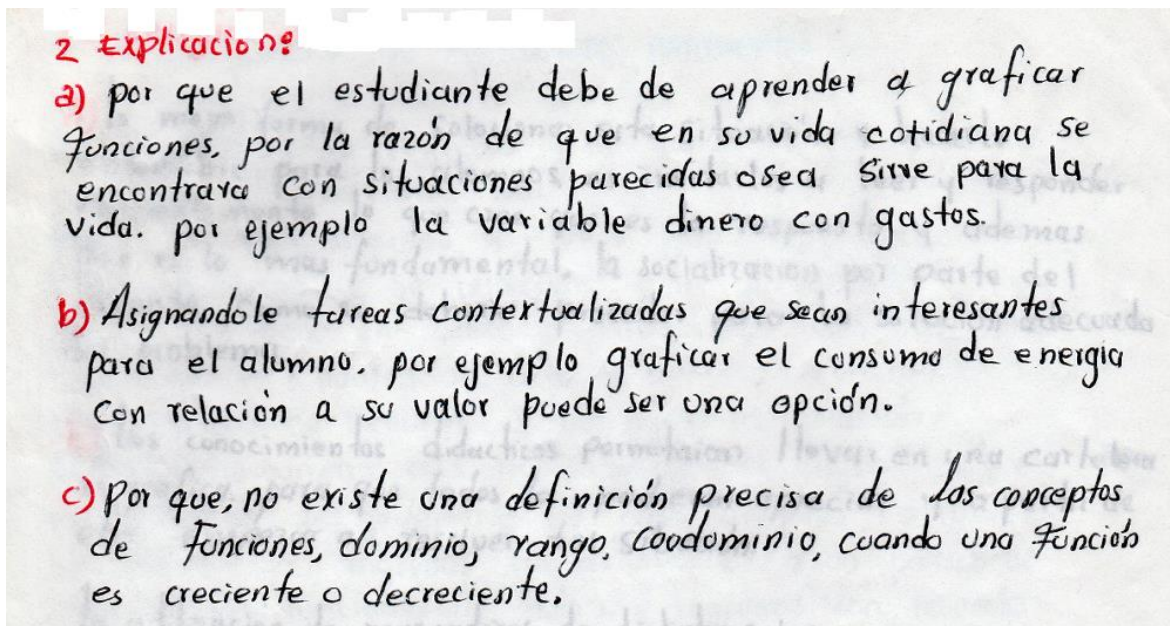 2 Explicacion:
a) por que el estudiante debe de aprender a graficar
Funciones, por la razón de que en su vida cotidiana se
encontrara con situaciones parecidas osea sirve para la
vida. por ejemplo la variable dinero con gastos.
b) Asignandole tareas contextualizadas que sean interesantes
para el alumno. por ejemplo graficar el consumo de energia
con relación a su valor puede ser una opción.
c) Por que, no existe una definición precisa de los conceptos
de Funciones, dominio, rango, Coodominio, cuando una Función
es creciente o decreciente.